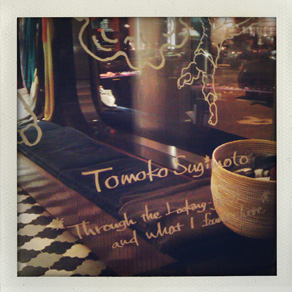 Tomoko Sugimoto
Through the Looking-
and what I found here